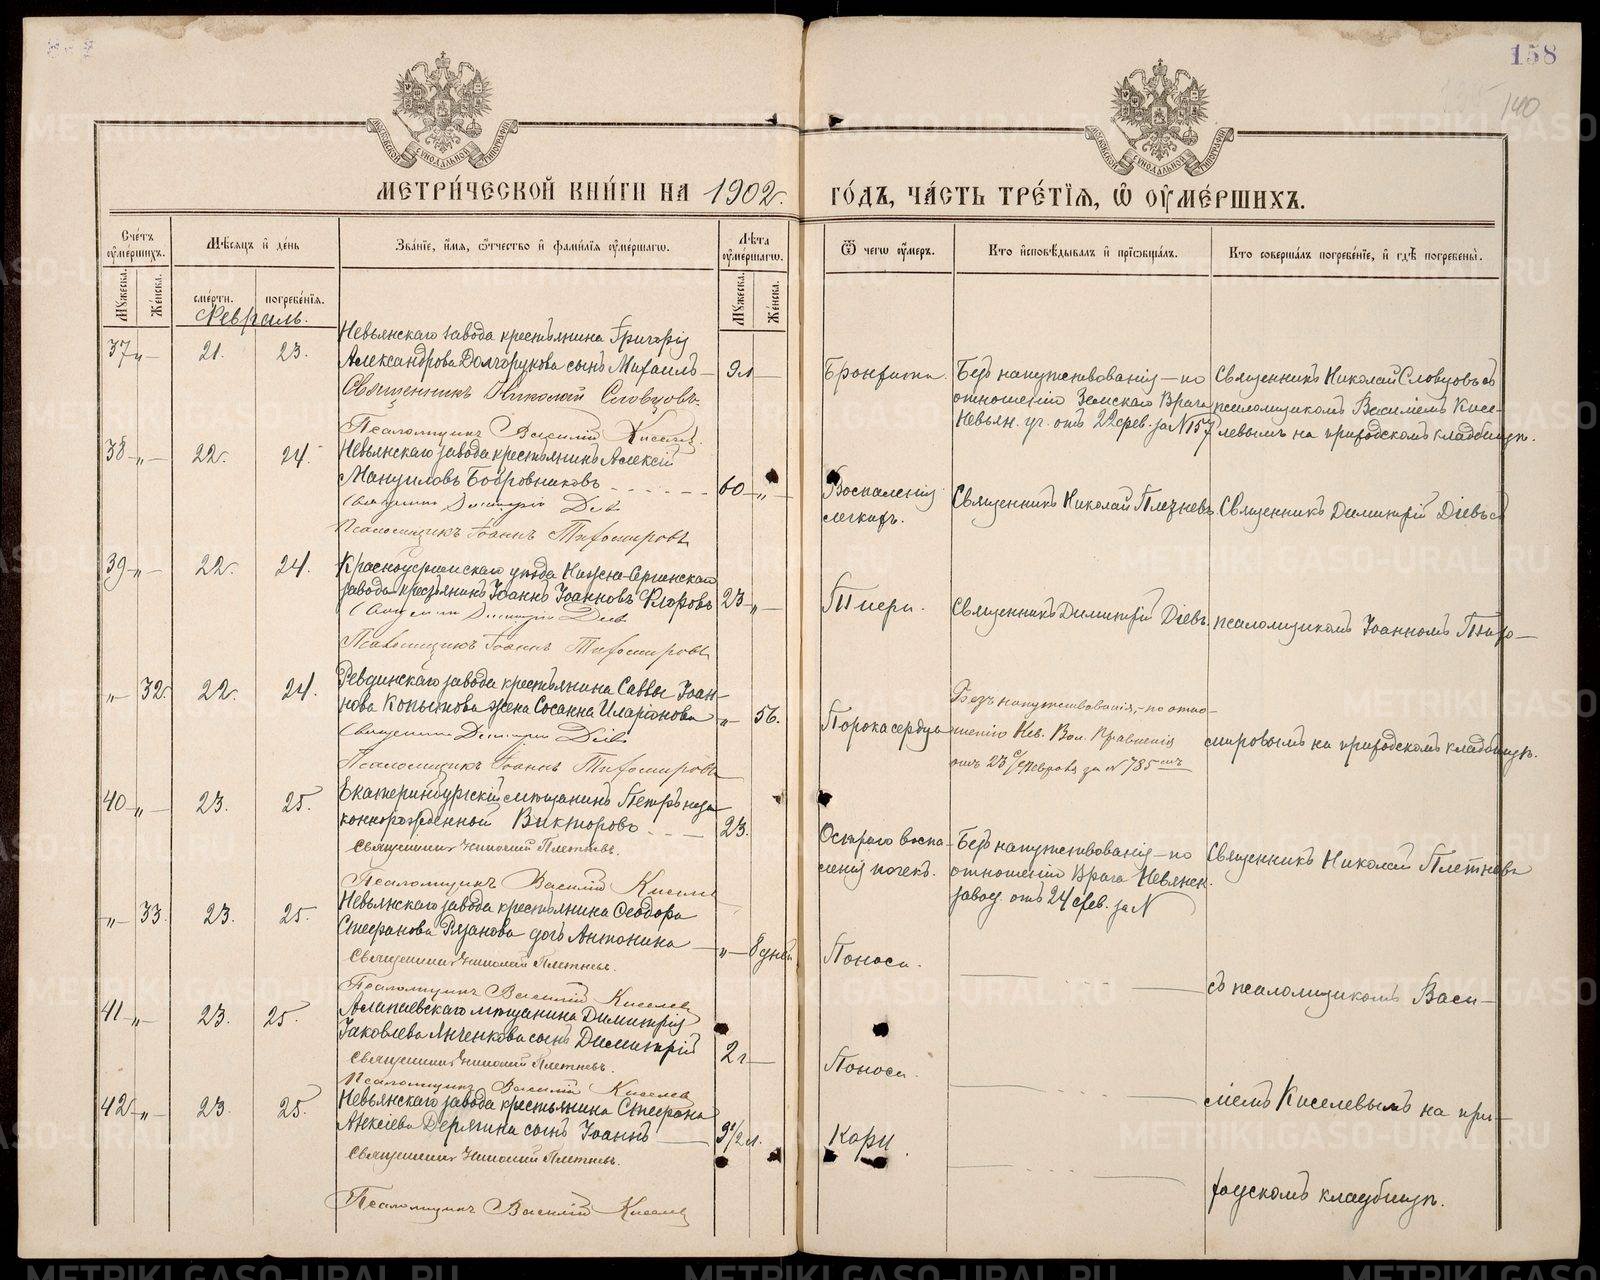 158
140
МЕТРИ́ЧЕСКОЙ КНИ́ГИ НА 1902 г.
ГО́ДЪ, ЧА́СТЬ ТРЕ́ТЇЯ, Ѡ҆ ОУ҆МЕ́РШИХЪ.
Сче́тъ оу҆ме́ршихъ.
Мѣ́сяцъ и҆ де́нь
Зва́нїе, и҆́мя, ѻ҆́тчество и҆ фами́лїя оу҆ме́ршагѡ.
Лѣ́та оу҆ме́ршагѡ.
Ѿ чегѡ̀ оу҆́меръ.
Кто̀ и҆сповѣ́дывалъ и҆ прїѡбща́лъ.
Кто̀ соверша́лъ погребе́нїе, и҆ гдѣ̀ погребены̀.
Му́жеска.
Же́нска.
сме́рти.
погребе́нїя.
Му́жеска.
Же́нска.
Февраль.
37 „ 21. 23.
Невьянскаго завода крестьянина Григорія
Александрова Долгорукова сынъ Михаилъ — 9 л —
Священникъ Николай Словцовъ.
Псаломщикъ Василій Киселевъ.
Бронхита.
Безъ напутствованія — по
отношенію Земскаго Врача
Невьян. уч. от 22 фев. за № 157
Священникъ Николай Словцовъ съ
псаломщикомъ Василіемъ Кисе-
левымъ на приходскомъ кладбищѣ.
38 „ 22. 24.
Невьянскаго завода крестьянинъ Алексій
Мануиловъ Бобровниковъ 60 „
Священникъ Димитрій Діевъ
Псаломщикъ Іоаннъ Тихомировъ
Воспаленія
легкихъ.
Священникъ Николай Плетневъ
Священникъ Димитрій Діевъ съ
39 „ 22. 24.
Красноуфимскаго уѣзда Нижне-Сергинскаго
завода крестьянинъ Іоаннъ Іоанновъ Флоровъ 23 „
Священникъ Димитрій Діевъ
Псаломщикъ Іоаннъ Тихомировъ
Священникъ Димитрій Діевъ.
псаломщикомъ Іоанномъ Тихо-
„ 32. 22. 24.
Ревдинскаго завода крестьянина Саввы Іоан-
нова Копытова жена Сосанна Иларіонова „ 56.
Священникъ Димитрій Діевъ
Псаломщикъ Іоаннъ Тихомировъ
Порока сердца
Безъ напутствованія, — по отно-
шенію Нев. Вол. Правленія
отъ 23 Февраля за № 785
мировымъ на приходскомъ кладбищѣ.
40 „ 23. 25.
Екатеринбургскій мѣщанинъ Петръ неза-
коннорожденной Викторовъ 23.
Священникъ Николай Плетневъ.
Псаломщикъ Василій Киселевъ
Остраго воспа-
ленія почекъ.
Безъ напутствованія — по
отношенію Врача Невьянск.
завод. отъ 24 фев. за №
Священникъ Николай Плетневъ
„ 33. 23. 25.
Невьянскаго завода крестьянина Ѳеодора
Стефанова дочь Антонина „ 8 дней
Священникъ Николай Плетневъ.
Псаломщикъ Василій Киселевъ
Поноса.
съ псаломщикомъ Васи-
41 „ 23. 25.
Алапаевскаго мѣщанина Димитрія
Іаковлева Янченкова сынъ Димитрій 2 г —
Священникъ Николай Плетневъ.
Псаломщикъ Василій Киселевъ
Поноса.
ліемъ Киселевымъ на при-
42 „ 23. 25.
Невьянскаго завода крестьянина Стефана
Алексіева Дерягина сынъ Іоаннъ — 9 1/2 л.
Священникъ Николай Плетневъ.
Псаломщикъ Василій Киселевъ
Кори.
ходскомъ кладбищѣ.
METRIKI.GASO-URAL.RU